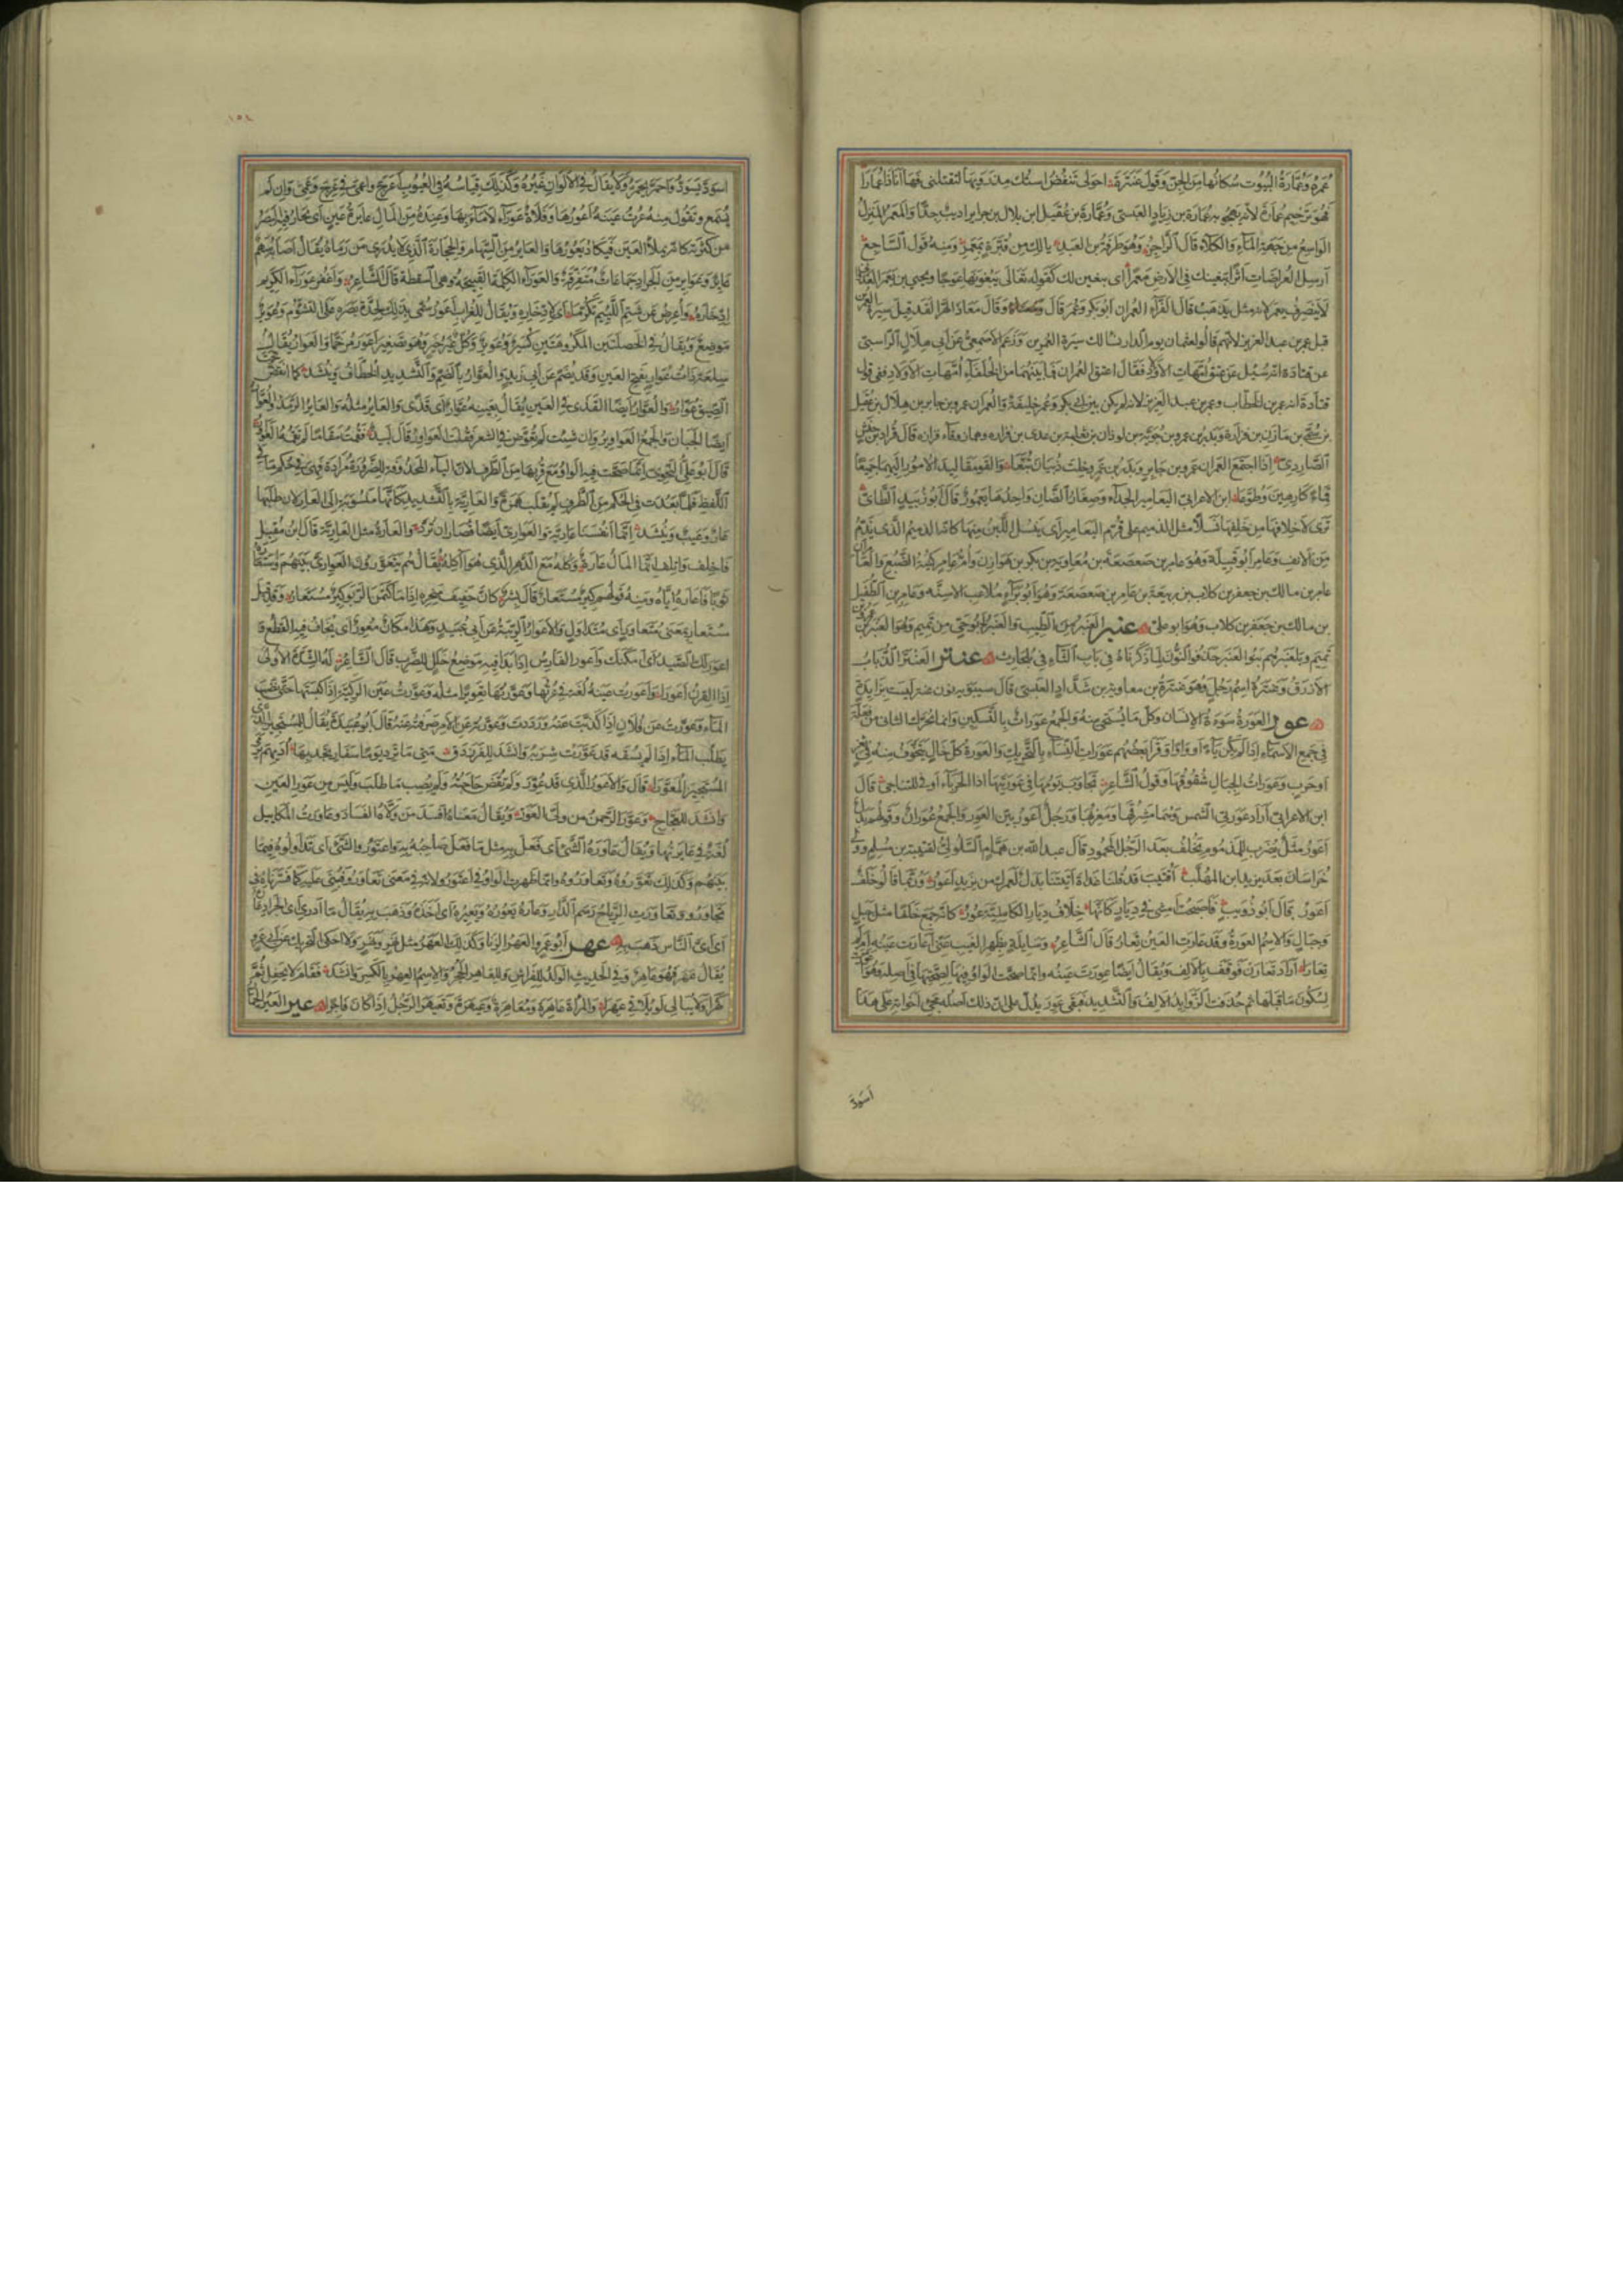 عمره وعمارة البيوت سكانها من الجن وقول عنترة احولى تنفض استك مذرويها لتقتلنى فها انا ذا عمارا
فهو ترخيم عمارة لانه يهجو به عمارة بن زياد العبسى وعمارة بن عقيل ابن بلال بن جرير اديب جدا والمعمر المنزل
الواسع من جهة الماء والكلأ قال الراجز وهو طرفة بن العبد يا لك من قبرة بمعمر ومنه قول الساجع
ارسل العراضات اثرا يبغينك فى الارض معمرا اى يبغين لك كقوله تعالى يبغونها عوجا ويحيى بن يعمر العدوانى
لا ينصرف يعمر لانه مثل يذهب قال الفراء العمران ابو بكر وعمر قال وقال معاذ الهرا لقد قيل سيرة العمرين
قبل عمر بن عبد العزيز لانهم قالوا لعثمان يوم الدار نسالك سيرة العمرين وزعم الاصمعى عن ابى هلال الراسبى
عن قتادة انه سئل عن عتق امهات الاولاد فقال اعتق العمران فما بينهما من الخلفاء امهات الاولاد ففى قول
قتادة انه عمر بن الخطاب وعمر بن عبد العزيز لانه لم يكن بين ابى بكر وعمر خليفة والعمران عمرو بن جابر بن هلال بن عقيل
بن سمى بن مازن بن فزارة وبدر بن عمرو بن جوية بن لوذان بن ثعلبة بن عدى بن فزارة وهما روقا فزارة قال قراد بن حنش
الصاردى اذا اجتمع العمران عمرو بن جابر وبدر بن عمرو خلت ذبيان تبعا والقوا مقاليد الامور اليهما جميعا
قماء كارهين وطوعا ابن الاعرابى اليعامير الجداء وصغار الضان واحدها يعمور قال ابو زبيد الطائى
ترى لاخلافها من خلفها نسلا مثل الذميم على قزم اليعامير اى ينسل اللبن منها كانه الذميم الذى يذم
من الانف وعامر ابو قبيلة وهو عامر بن صعصعة بن معاوية بن بكر بن هوازن وام عامر كنية الضبع والعامران
عامر بن مالك بن جعفر بن كلاب بن ربيعة بن عامر بن صعصعة وهو ابو براء ملاعب الاسنة وعامر بن الطفيل
بن مالك بن جعفر بن كلاب وهو ابو على عنبر العنبر من الطيب والعنبر ابو حى من تميم وهو العنبر بن عمرو بن
تميم وبلعنبر هم بنو العنبر حذفوا النون لما ذكرناه فى باب الثاء فى بلحارث عنتر العنتر الذباب
الازرق وعنترة اسم رجل وهو عنترة بن معاوية بن شداد العبسى قال سيبويه نون عنتر ليست بزايدة
عور العورة سوءة الانسان وكل ما يستحى منه والجمع عورات بالتسكين وانما يحرك الثانى من فعلة
فى جمع الاسماء اذا لم يكن ياء او واوا وقرا بعضهم عورات النساء بالتحريك والعورة كل خلل يتخوف منه فى ثغر
او حرب وعورات الجبال شقوقها وقول الشاعر تجاوب بومها فى عورتيها اذا الحرباء اوفى للتناجى قال
ابن الاعرابى اراد عورتى الشمس وهما مشرقها ومغربها ورجل اعور بين العور والجمع عوران وقولهم بدل
اعور مثل يضرب للمذموم يخلف بعد الرجل المحمود قال عبد الله بن همام السلولى لقتيبة بن مسلم وولى
خراسان بعد يزيد ابن المهلب اقتيب قد قلنا غداة اتيتنا بدل لعمرك من يزيد اعور وربما قالوا خلف
اعور قال ابو ذويب فاصبحت امشى فى ديار كانها خلاف ديار الكاملية عور كانه جمع خلفا مثل جبل
وجبال والاسم العورة وقد عارت العين تعار قال الشاعر وسايلة بظهر الغيب عنى اعارت عينه ام لم
تعارا اراد تعارن فوقف بالالف ويقال ايضا عورت عينه وانما صحت الواو فيها لصحتها فى اصله وهو اعورت
لسكون ما قبلها ثم حذفت الزوايد الالف والتشديد فبقى عور يدل على ان ذلك اصله مجى اخواته على هذا
اسود
١٥٨
اسود يسود واحمر يحمر ولا يقال فى الالوان غيره وكذلك قياسه فى العيوب اعرج واعمى فى عرج وعمى وان لم
يسمع وتقول منه عرت عينه اعورها وفلاة عوراء لا ماء بها وعنده من المال عايرة عين اى يحار فيه البصر
من كثرته كانه يملأ العين فيكاد يعورها والعاير من السهام والحجارة الذى لا يدرى من رماه يقال اصابه سهم
عاير وعواير من الجراد جماعات متفرقة والعوراء الكلمة القبيحة وهى السقطة قال الشاعر واغفر عوراء الكريم
ادخاره واعرض عن شتم اللئيم تكرما اى لادخاره ويقال للغراب اعور سمى بذلك لحدة بصره على التشؤم وعوير
موضع ويقال فى الخصلتين المكروهتين كسير وعوير وكل غير خير وهو تصغير اعور مرخما والعوار العيب يقال
سلعة ذات عوار بفتح العين وقد يضم عن ابى زيد والعوار بالضم والتشديد الخطاف وينشد كما انقض تحت
الصيق عوار والعوار ايضا القذى فى العين يقال بعينه عوار اى قذى والعاير مثله والعاير الرمد والعوار
ايضا الجبان والجمع العواوير وان شئت لم تعوض فى الشعر فقلت العواور قال لبيد فقمت مقاما لم تقمه العواور
قال ابو على النحوى انما صحت فيه الواو مع قربها من الطرف لان الياء المحذوفة للضرورة مرادة فهى فى حكم ما فى
اللفظ فلما بعدت فى الحكم من الطرف لم تقلب همزة والعارية بالتشديد كانها منسوبة الى العار لان طلبها
عار وعيب وينشد انما انفسنا عارية والعوارى ايضا قصار ان ترد والعارة مثل العارية قال ابن مقبل
فاخلف واتلف انما المال عارة وكله مع الدهر الذى هو آكله يقال هم يتعورون العوارى بينهم واستعار
ثوبا فاعاره اياه ومنه قولهم كير مستعار قال بشر كان حفيف منخره اذا ما كتمن الربو كير مستعار وقد قيل
مستعار بمعنى متعاور اى متداول والاعوار الريبة عن ابى عبيد وهذا مكان معور اى يخاف فيه القطع و
اعور لك الصيد اى امكنك واعور الفارس اذا بدا فيه موضع خلل للضرب قال الشاعر له الشدة الاولى
اذا القرن اعورا واعورت عينه لغة فى عرتها وعورتها تعويرا مثله وعورت عين الركية اذا كبستها حتى نضب
الماء وعورت عن فلان اذا كذبت عنه ورددت وعورته عن الامر صرفته عنه قال ابو عبيدة يقال للمستجيز الذى
يطلب الماء اذا لم يسقه قد عورت شربه وانشد للفرزدق متى ما ترد يوما سفار تجد بها اديهم يرمى
المستجيز المعورا قال والاعور الذى قد عور ولم تقض حاجته ولم يصب ما طلب وليس من عور العين
وانشد للعجاج وعور الرحمن من ولى العور ويقال معناه افسد من ولاه الفساد وعاورت المكاييل
لغة فى عايرتها ويقال عاوره الشىء اى فعل به مثل ما فعل صاحبه به واعتوروا الشىء اى تداولوه فيما
بينهم وكذلك تعوروه وتعاوروه وانما ظهرت الواو فى اعتوروا لانه فى معنى تعاوروا فبنى عليه كما فسرناه فى
تجاوروا وتعاورت الرياح رسم الدار وعاره يعوره ويعيره اى اخذه وذهب به يقال ما ادرى اى الجراد عاره
اى اى الناس ذهب به عهر ابو عمرو العهر الزنا وكذلك العهر مثل نهر ونهر ولا احكى التحريك عن ابى عمرو
يقال عهر فهو عاهر وفى الحديث الولد للفراش وللعاهر الحجر والاسم العهر بالكسر وانشد فقام لا يحفل ثم
كهرا ولا يبالى لو يلاقى عهرا والمراة عاهرة ومعاهرة وعيهرة وتعيهر الرجل اذا كان فاجرا عير العير الحمار